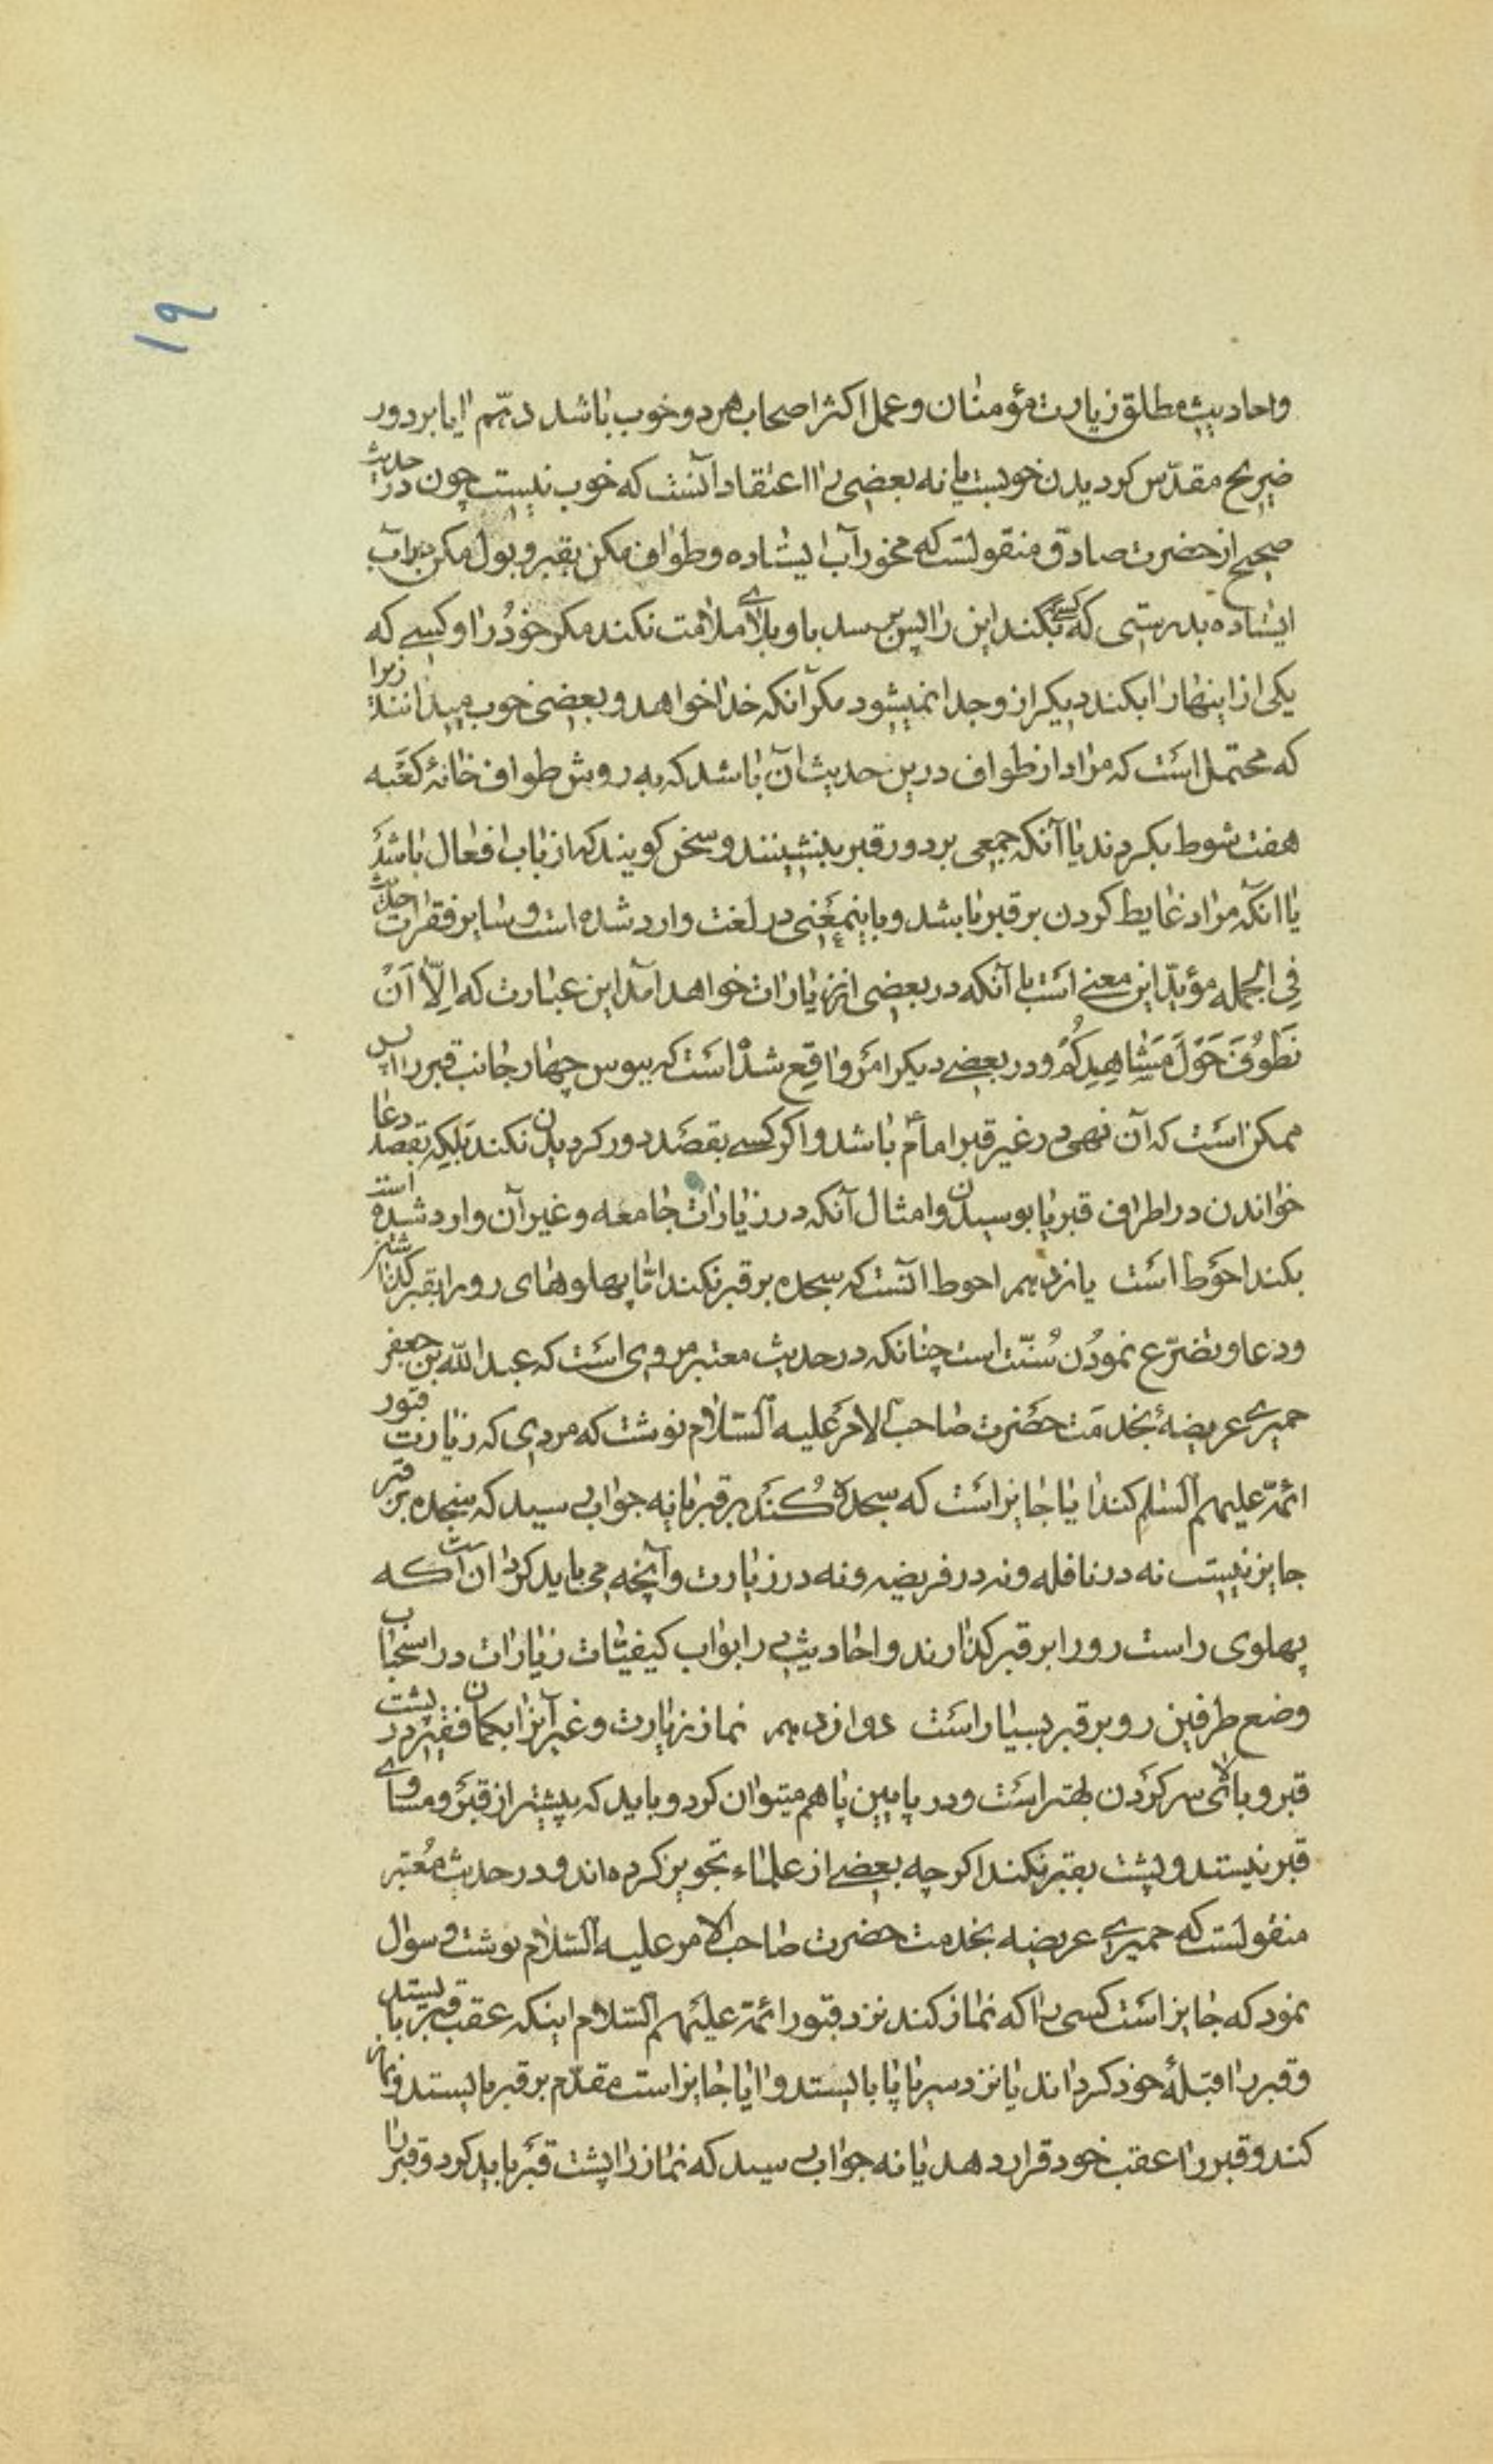 ۱۹
واحادیث مطلق زیارت مؤمنان وعمل اکثر اصحاب هر دو خوب باشد دهّم ایا بر دور
ضریح مقدّس کردیدن خوبست یا نه بعضی را اعتقاد آنست که خوب نیست چون در حدیث
صحیح از حضرت صادق منقولست که مخور آب ایستاده وطواف مکن بقبر و بول مکن در آب
ایستاده بدرستی که کسی بکند این را پس برسد باو بلای ملامت نکند مکر خود را و کسے که
یکی از اینها را بکند دیکر از و جدا نمیشود مکر آنکه خدا خواهد و بعضی خوب میدانند زیرا
که محتمل است که مراد از طواف درین حدیث آن باشد که به روش طواف خانۀ کعبه
هفت شوط بکردند یا آنکه جمعی بر دور قبر بنشینند و سخن کویند که از باب افعال باشد
یا انکه مراد غایط کردن بر قبر باشد و باینمعنی در لغت وارد شده است و سایر فقرات حدیث
فِی الجمله مؤید این معنے است با آنکه در بعضی از زیارات خواهد آمد این عبارت که اِلّا اَنْ
نَطُوفَ حَوْلَ مَشاهِدِکُمْ و در بعضے دیکر امر واقع شده است که ببوس چهار جانب قبر را پس
ممکن است که آن نهی در غیر قبر امام باشد و اکر کسے بقصد دور کردیدن نکند بلکه بقصد دعا
خواندن در اطراف قبر یا بوسیدن و امثال آنکه در زیارات جامعه و غیر آن وارد شده است
بکند احوط است یازدهم احوط آنست که سجده بر قبر نکند امّا پهلوهای رو را بقبر کذاشتن
و دعا و تضرّع نمودن سُنّت است چنانکه در حدیث معتبر مروی است که عبد الله بن جعفر
حمیرے عریضۀ بخدمت حضرت صاحب الامر علیه السّلام نوشت که مردی که زیارت قبور
ائمّه علیهم السّلم کند ایا جایز است که سجده کُند بر قبر یا نه جواب رسید که سجده بر قبر
جایز نیست نه در نافله و نه در فریضه و نه در زیارت و آنچه می باید کرد آن است که
پهلوی راست رو را بر قبر کذارند و احادیث در ابواب کیفیّات زیارات در استحباب
وضع طرفین رو بر قبر بسیار است دوازدهم نماز زیارت و غیر آنرا بکمان فقیر در پشت
قبر و بالای سر کردن بهتر است و در پایین پا هم میتوان کرد و باید که پیشتر از قبر و مساوی
قبر نیستد و پشت بقبر نکند اکر چه بعضے از علماء تجویز کرده اند و در حدیث معتبر
منقولست که حمیرے عریضه بخدمت حضرت صاحب الامر علیه السّلام نوشت و سوال
نمود که جایز است کسی را که نماز کند نزد قبور ائمّه علیهم السّلام اینکه عقب قبر بایستد
و قبر را قبلۀ خود کرداند یا نزد سر یا پا بایستد و ایا جایز است مقدّم بر قبر بایستد و نماز
کند و قبر را عقب خود قرار دهد یا نه جواب رسید که نماز را پشت قبر باید کرد و قبر را